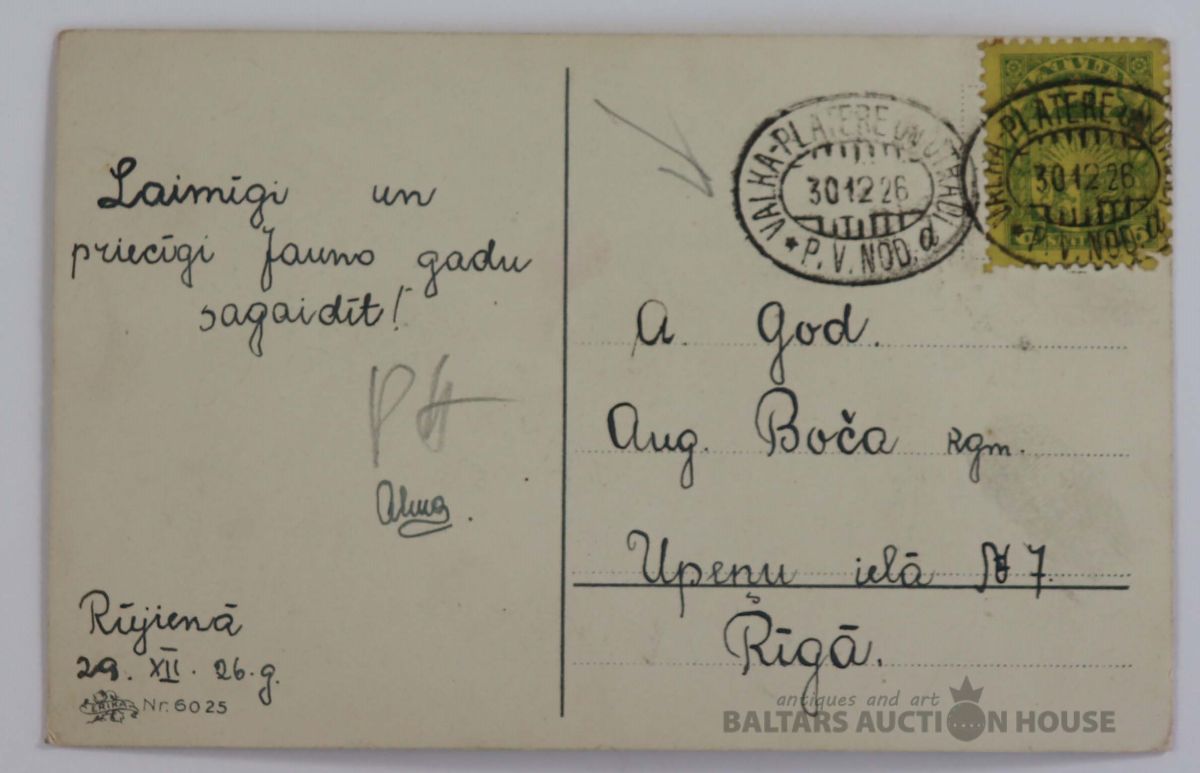 Laimīgi un
priecīgi Jauno gadu
sagaidīt!
Alma.
Rūjienā
29. XII. 26.g.
ERIKA
Nr. 6025
LATVIJA
VALKA-PLATERE UN OTRADI
30 12 26
★ P. V. NOD. a
VALKA-PLATERE UN OTRADI
30 12 26
★ P. V. NOD. a
A. God.
Aug. Boča kgm.
Upeņu ielā № 7.
Rīgā.
antiques and art
BALTARS AUCTION HOUSE